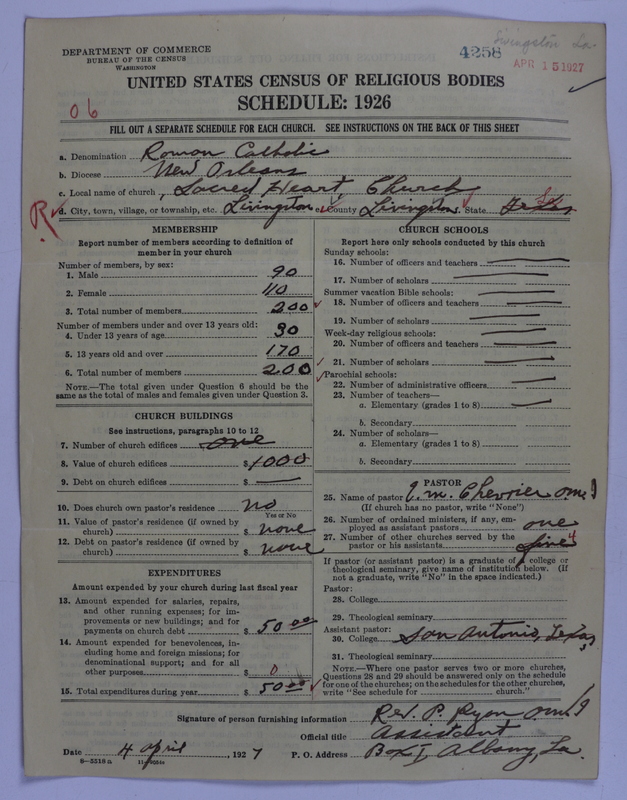 Livingston La.
4258
APR 15 1927
DEPARTMENT OF COMMERCE
BUREAU OF THE CENSUS
WASHINGTON
UNITED STATES CENSUS OF RELIGIOUS BODIES
SCHEDULE: 1926
06
FILL OUT A SEPARATE SCHEDULE FOR EACH CHURCH. SEE INSTRUCTIONS ON THE BACK OF THIS SHEET
a. Denomination Roman Catholic
b. Diocese New Orleans
c. Local name of church Sacred Heart Church
R
d. City, town, village, or township, etc. Livingston e. County Livingston f. State
MEMBERSHIP
Report number of members according to definition of
member in your church
Number of members, by sex:
1. Male 90
2. Female 110
3. Total number of members 200
Number of members under and over 13 years old:
4. Under 13 years of age 30
5. 13 years old and over 170
6. Total number of members 200
NOTE.—The total given under Question 6 should be the
same as the total of males and females given under Question 3.
CHURCH BUILDINGS
See instructions, paragraphs 10 to 12
7. Number of church edifices one
8. Value of church edifices $1000
9. Debt on church edifices $ —
10. Does church own pastor's residence No
Yes or No
11. Value of pastor's residence (if owned by
church) $ none
12. Debt on pastor's residence (if owned by
church) $ none
EXPENDITURES
Amount expended by your church during last fiscal year
13. Amount expended for salaries, repairs,
and other running expenses; for im-
provements or new buildings; and for
payments on church debt $ 50 00
14. Amount expended for benevolences, in-
cluding home and foreign missions; for
denominational support; and for all
other purposes $ 0
15. Total expenditures during year $ 50 00
CHURCH SCHOOLS
Report here only schools conducted by this church
Sunday schools:
16. Number of officers and teachers
17. Number of scholars
Summer vacation Bible schools:
18. Number of officers and teachers
19. Number of scholars
Week-day religious schools:
20. Number of officers and teachers
21. Number of scholars
Parochial schools:
22. Number of administrative officers
23. Number of teachers—
a. Elementary (grades 1 to 8)
b. Secondary
24. Number of scholars—
a. Elementary (grades 1 to 8)
b. Secondary
PASTOR
25. Name of pastor J. M. Chevrier OMI
(If church has no pastor, write "None")
26. Number of ordained ministers, if any, em-
ployed as assistant pastors one
27. Number of other churches served by the
pastor or his assistants five 4
If pastor (or assistant pastor) is a graduate of a college or
theological seminary, give name of institution below. (If
not a graduate, write "No" in the space indicated.)
Pastor:
28. College
29. Theological seminary
Assistant pastor:
30. College San Antonio, Texas
31. Theological seminary
NOTE.—Where one pastor serves two or more churches,
Questions 28 and 29 should be answered only on the schedule
for one of the churches; on the schedules for the other churches,
write "See schedule for church."
Signature of person furnishing information Rev. P. Ryan OMI
Official title Assistant
Date 4 April, 1927 P. O. Address Box I, Albany, La.
8—5518a